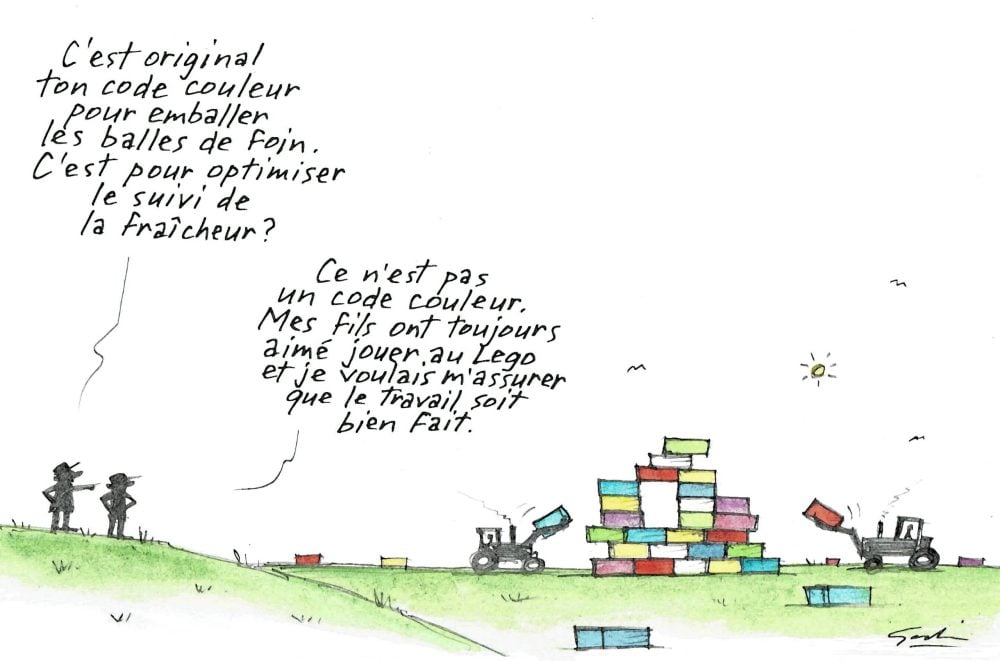 C'est original
ton code couleur
pour emballer
les balles de foin.
C'est pour optimiser
le suivi de
la fraîcheur?
Ce n'est pas
un code couleur.
Mes fils ont toujours
aimé jouer au Lego
et je voulais m'assurer
que le travail soit
bien fait.